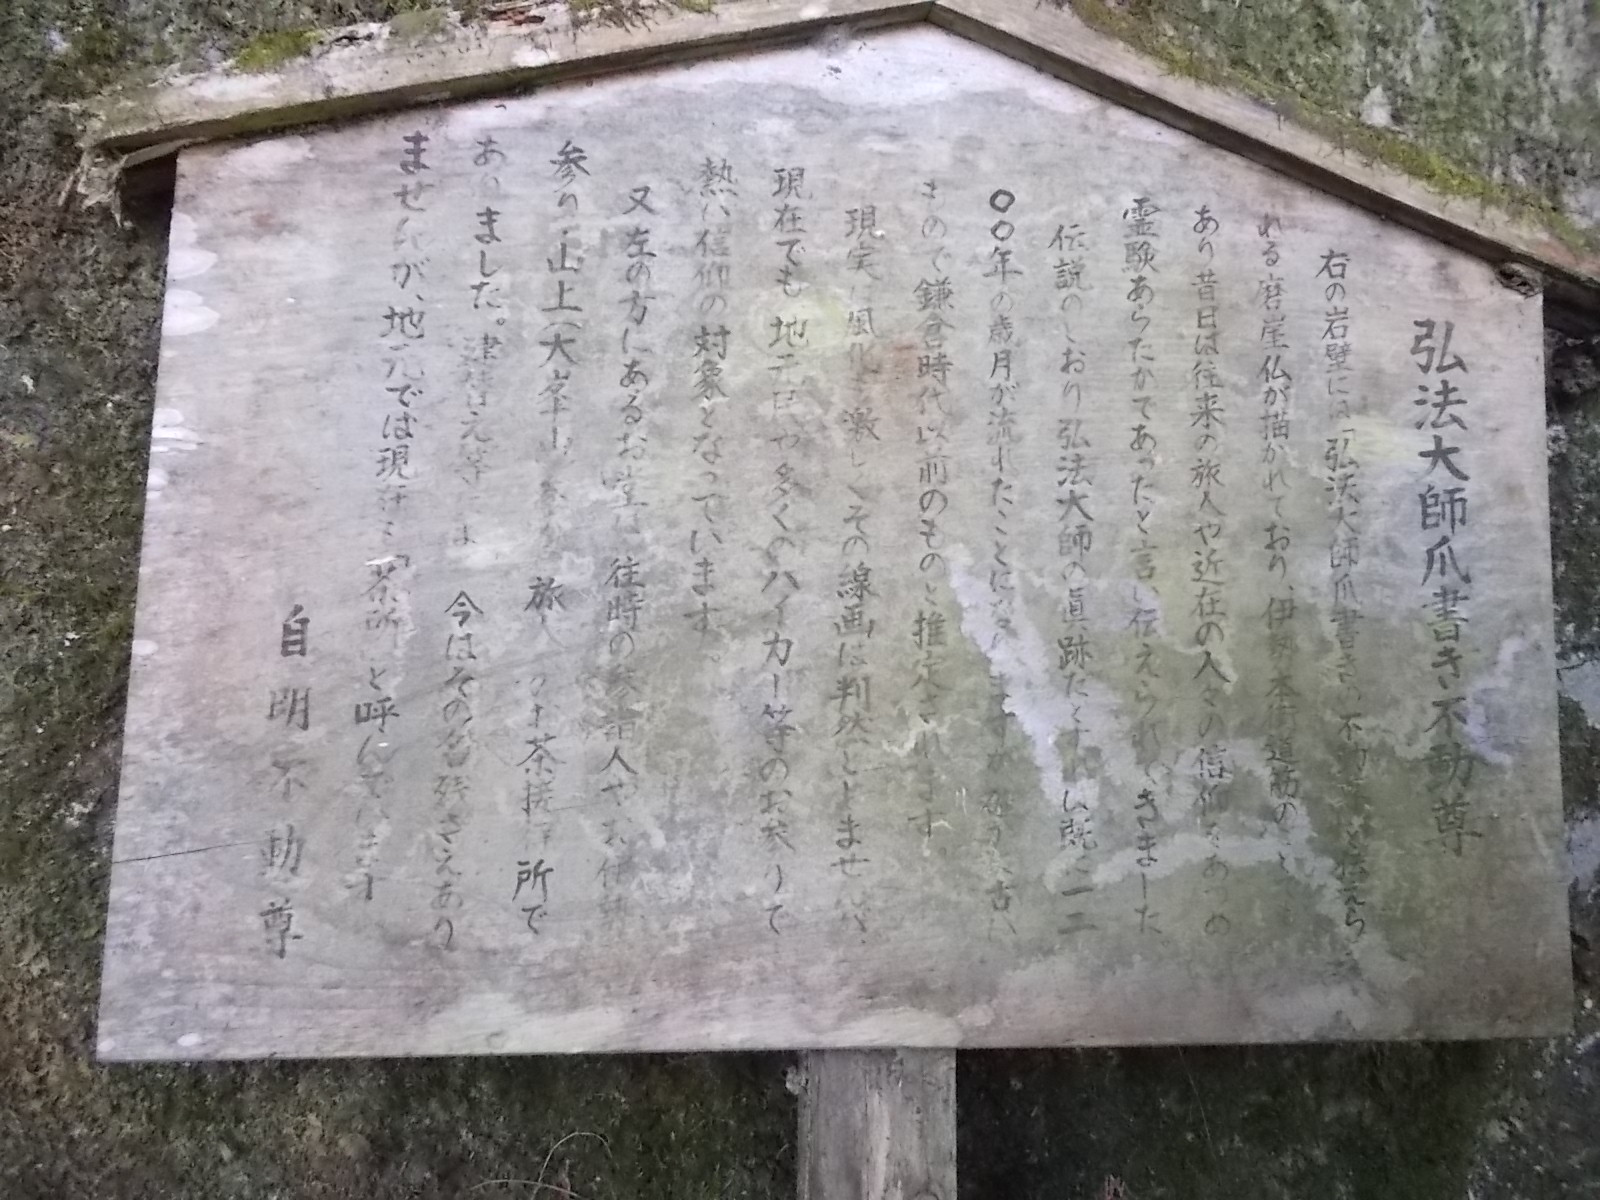 弘法大師爪書き不動尊
右の岩壁には「弘法大師爪書きの不動尊」と伝えら
れる磨崖仏が描かれており、伊勢本街道筋の
あり昔日は往来の旅人や近在の人々の信仰をあつめ
霊験あらたかであったと言い伝えられてきました。
伝説のとおり弘法大師の眞跡だとすれば既に一二
〇〇年の歳月が流れたことになりますが
もので鎌倉時代以前のものと推定されます
現実に風化が激しくその線画は判然としませんが、
現在でも地元民や多くのハイカー等のお参りで
熱い信仰の対象となっています。
又左の方にあるお堂は往時の参詣人やお伊勢
参り・山上(大峯山 旅人のお茶接待所で
ありました。 今はその名残さえあり
ませんが、地元では現在も「茶所」と呼んでいます
自明不動尊